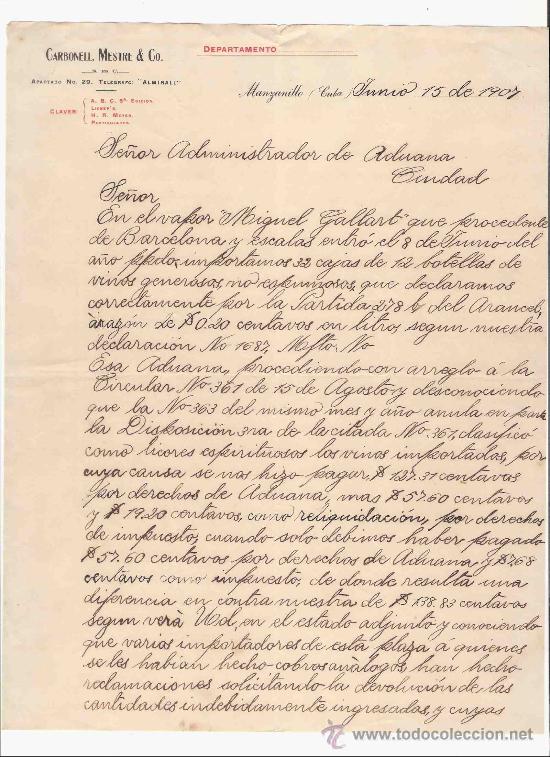 CARBONELL, MESTRE & Co.
DEPARTAMENTO
APARTADO No. 29. TELEGRAFO: "ALMIRALL"
CLAVES:
A. B. C. 5ª EDICION.
LIEBER'S.
H. R. MEYER.
PARTICULARES.
Manzanillo (Cuba) Junio 15 de 1907
Señor Administrador de Aduana
Ciudad
Señor
En el vapor "Miguel Gallart" que procedente
de Barcelona y escalas entró el 8 de Junio del
año ppdo, importamos 32 cajas de 12 botellas de
vinos generosos, no espumosos, que declaramos
correctamente por la Partida 278 b del Arancel,
à razón de $0.20 centavos en litro, segun nuestra
declaración No 1687, Mfto. No
Esa Aduana, procediendo con arreglo á la
Circular No 361 de 15 de Agosto y desconociendo
que la No 363 del mismo mes y año anula en parte
la Disposición 3ra de la citada No 361, clasificó
como licores espirituosos los vinos importados, por
cuya causa se nos hizo pagar $127.31 centavos
por derechos de Aduana, mas $57.60 centavos
y $19.20 centavos, como reliquidación, por derechos
de impuesto, cuando solo debimos haber pagado
$57.60 centavos por derechos de Aduana y $7.68
centavos como impuesto, de donde resulta una
diferencia en contra nuestra de $138.83 centavos
segun verà Ud, en el estado adjunto y conociendo
que varios importadores de esta plaza á quienes
se les habian hecho cobros anàlogos, han hecho
reclamaciones solicitando la devolución de las
cantidades indebidamente ingresadas, y cuyas
todocoleccion.net